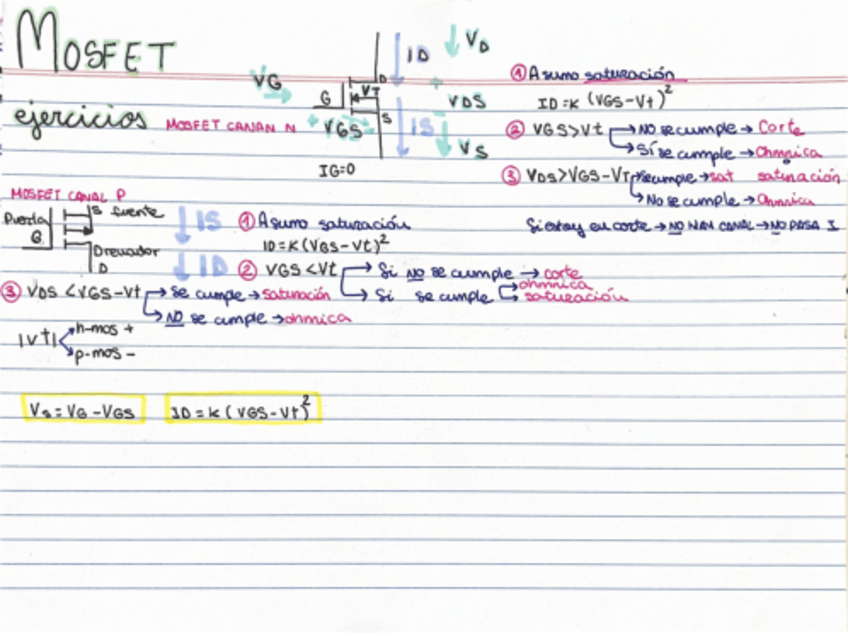 MOSFET
ejercicios MOSFET CANAN N
VG
G
D
VT
S
VGS
+
ID
IS
VD
+
VDS
-
VS
IG=0
① Asumo saturación
ID=K (VGS-Vt)²
② VGS>Vt → NO se cumple → Corte
→ Sí se cumple → Ohmnica
saturación
③ VDS>VGS-VT → se cumple → sat
→ No se cumple → Ohmica
Si estoy en corte → NO HAY CANAL → NO PASA I
MOSFET CANAL P
Puerta
G
S fuente
Drenador
D
IS
ID
① Asumo saturación
ID=K(VGS-Vt)²
② VGS <Vt → Si NO se cumple → corte
→ Si se cumple → ohmnica
→ saturación
③ VDS <VGS-Vt → se cumple → saturación
→ NO se cumple → ohmica
|Vt| n-mos +
p-mos -
Vs = VG -VGS
ID = K (VGS-Vt)²